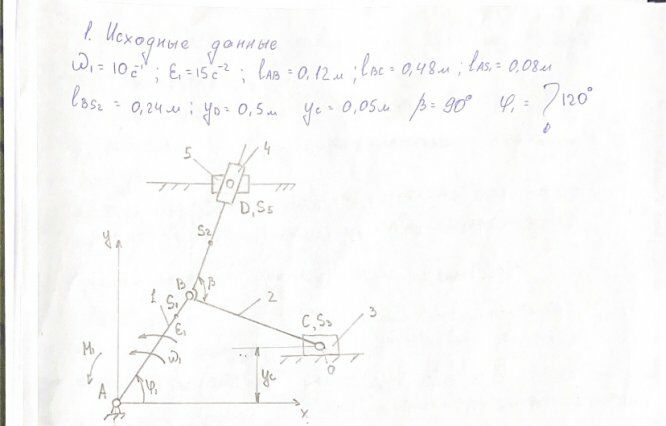 1. Исходные данные
ω₁ = 10 с⁻¹ ; ε₁ = 15 с⁻² ; lAB = 0,12 м ; lBC = 0,48 м ; lAS₁ = 0,08 м
lBS₂ = 0,24 м ; yD = 0,5 м yC = 0,05 м β = 90° φ₁ = 120°
5
4
D, S₅
S₂
y
B
β
1
S₁
2
C, S₃
3
ε₁
ω₁
0
M₁
yC
A
φ₁
x